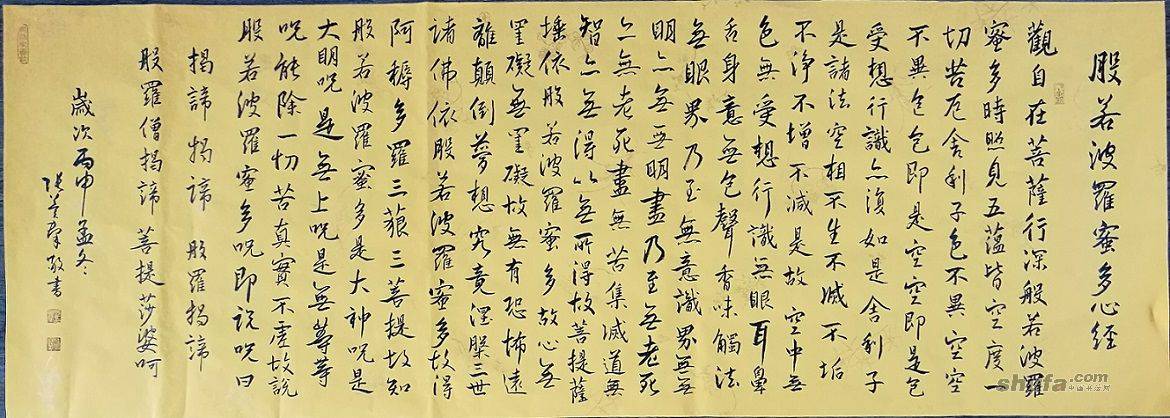 般若波羅蜜多心经
觀自在菩薩行深般若波羅
蜜多時照見五蕴皆空度一
切苦厄舍利子色不異空空
不異色色即是空空即是色
受想行識亦復如是舍利子
是諸法空相不生不滅不垢
不淨不增不减是故空中無
色無受想行識無眼耳鼻
舌身意無色聲香味觸法
無眼界乃至無意識界無無
明亦無無明盡乃至無老死
亦無老死盡無苦集滅道無
智亦無得以無所得故菩提薩
埵依般若波羅蜜多故心無
罣礙無罣礙故無有恐怖遠
離顛倒夢想究竟涅槃三世
諸佛依般若波羅蜜多故得
阿耨多羅三藐三菩提故知
般若波羅蜜多是大神呪是
大明呪是無上呪是無等等
呪能除一切苦真實不虚故說
般若波羅蜜多呪即说呪曰
揭諦揭諦 般羅揭諦
般羅僧揭諦 菩提莎婆呵
歲次丙申孟冬
敬書
shufa.com
中国书法网